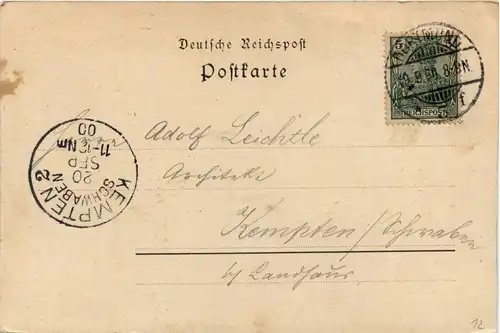 Deutsche Reichspost
Postkarte
5
8-9N.
f
REICHSPOST
KEMPTEN 2
SCHWABEN
20
SEP
11-12 Nm
00
Herrn Adolf Leichtle
Architekt
Kempten/Schwaben
b/ Landhaus
12